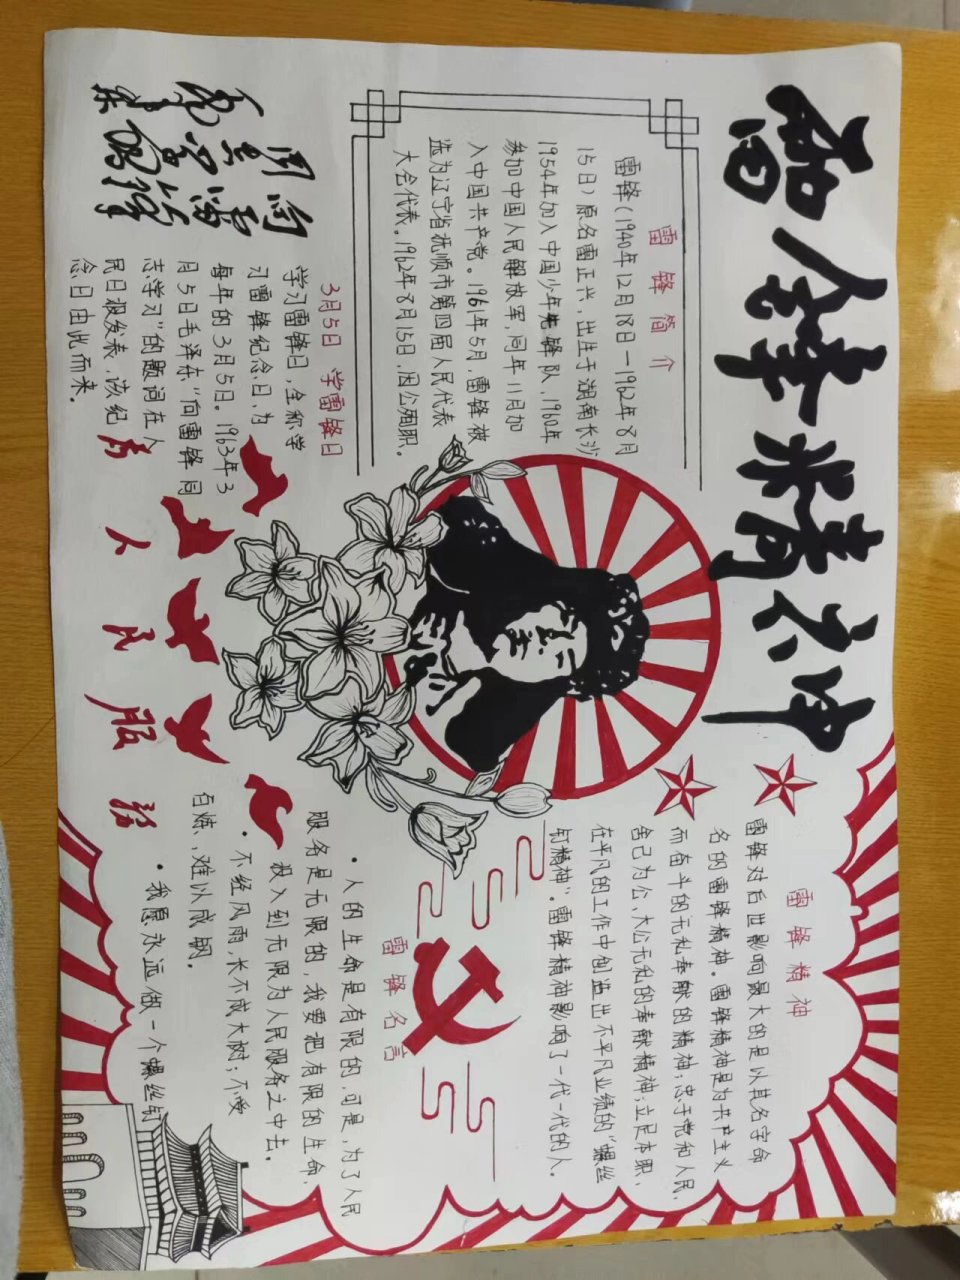 雷锋精神
雷锋简介
雷锋（1940年12月18日—1962年8月
15日）原名雷正兴，出生于湖南长沙
1954年加入中国少年先锋队，1960年
参加中国人民解放军，同年11月加
入中国共产党。1961年5月，雷锋被
选为辽宁省抚顺市第四届人民代表
大会代表。1962年8月15日，因公殉职。
向雷锋
同志学习
毛泽东
3月5日 学雷锋日
学习雷锋日，全称学
习雷锋纪念日，为
每年的3月5日。1963年3
月5日毛泽东“向雷锋同
志学习”的题词在人
民日报发表，该纪
念日由此而来。
为人民服务
雷锋精神
雷锋对后世影响最大的是以其名字命
名的雷锋精神。雷锋精神是为共产主义
而奋斗的无私奉献的精神；忠于党和人民、
舍己为公、大公无私的奉献精神；立足本职、
在平凡的工作中创造出不平凡业绩的“螺丝
钉精神”。雷锋精神影响了一代一代的人。
雷锋名言
·人的生命是有限的，可是，为了人民
服务是无限的，我要把有限的生命，
投入到无限为人民服务之中去。
·不经风雨，长不成大树；不受
百炼，难以成钢。
·我愿永远做一个螺丝钉